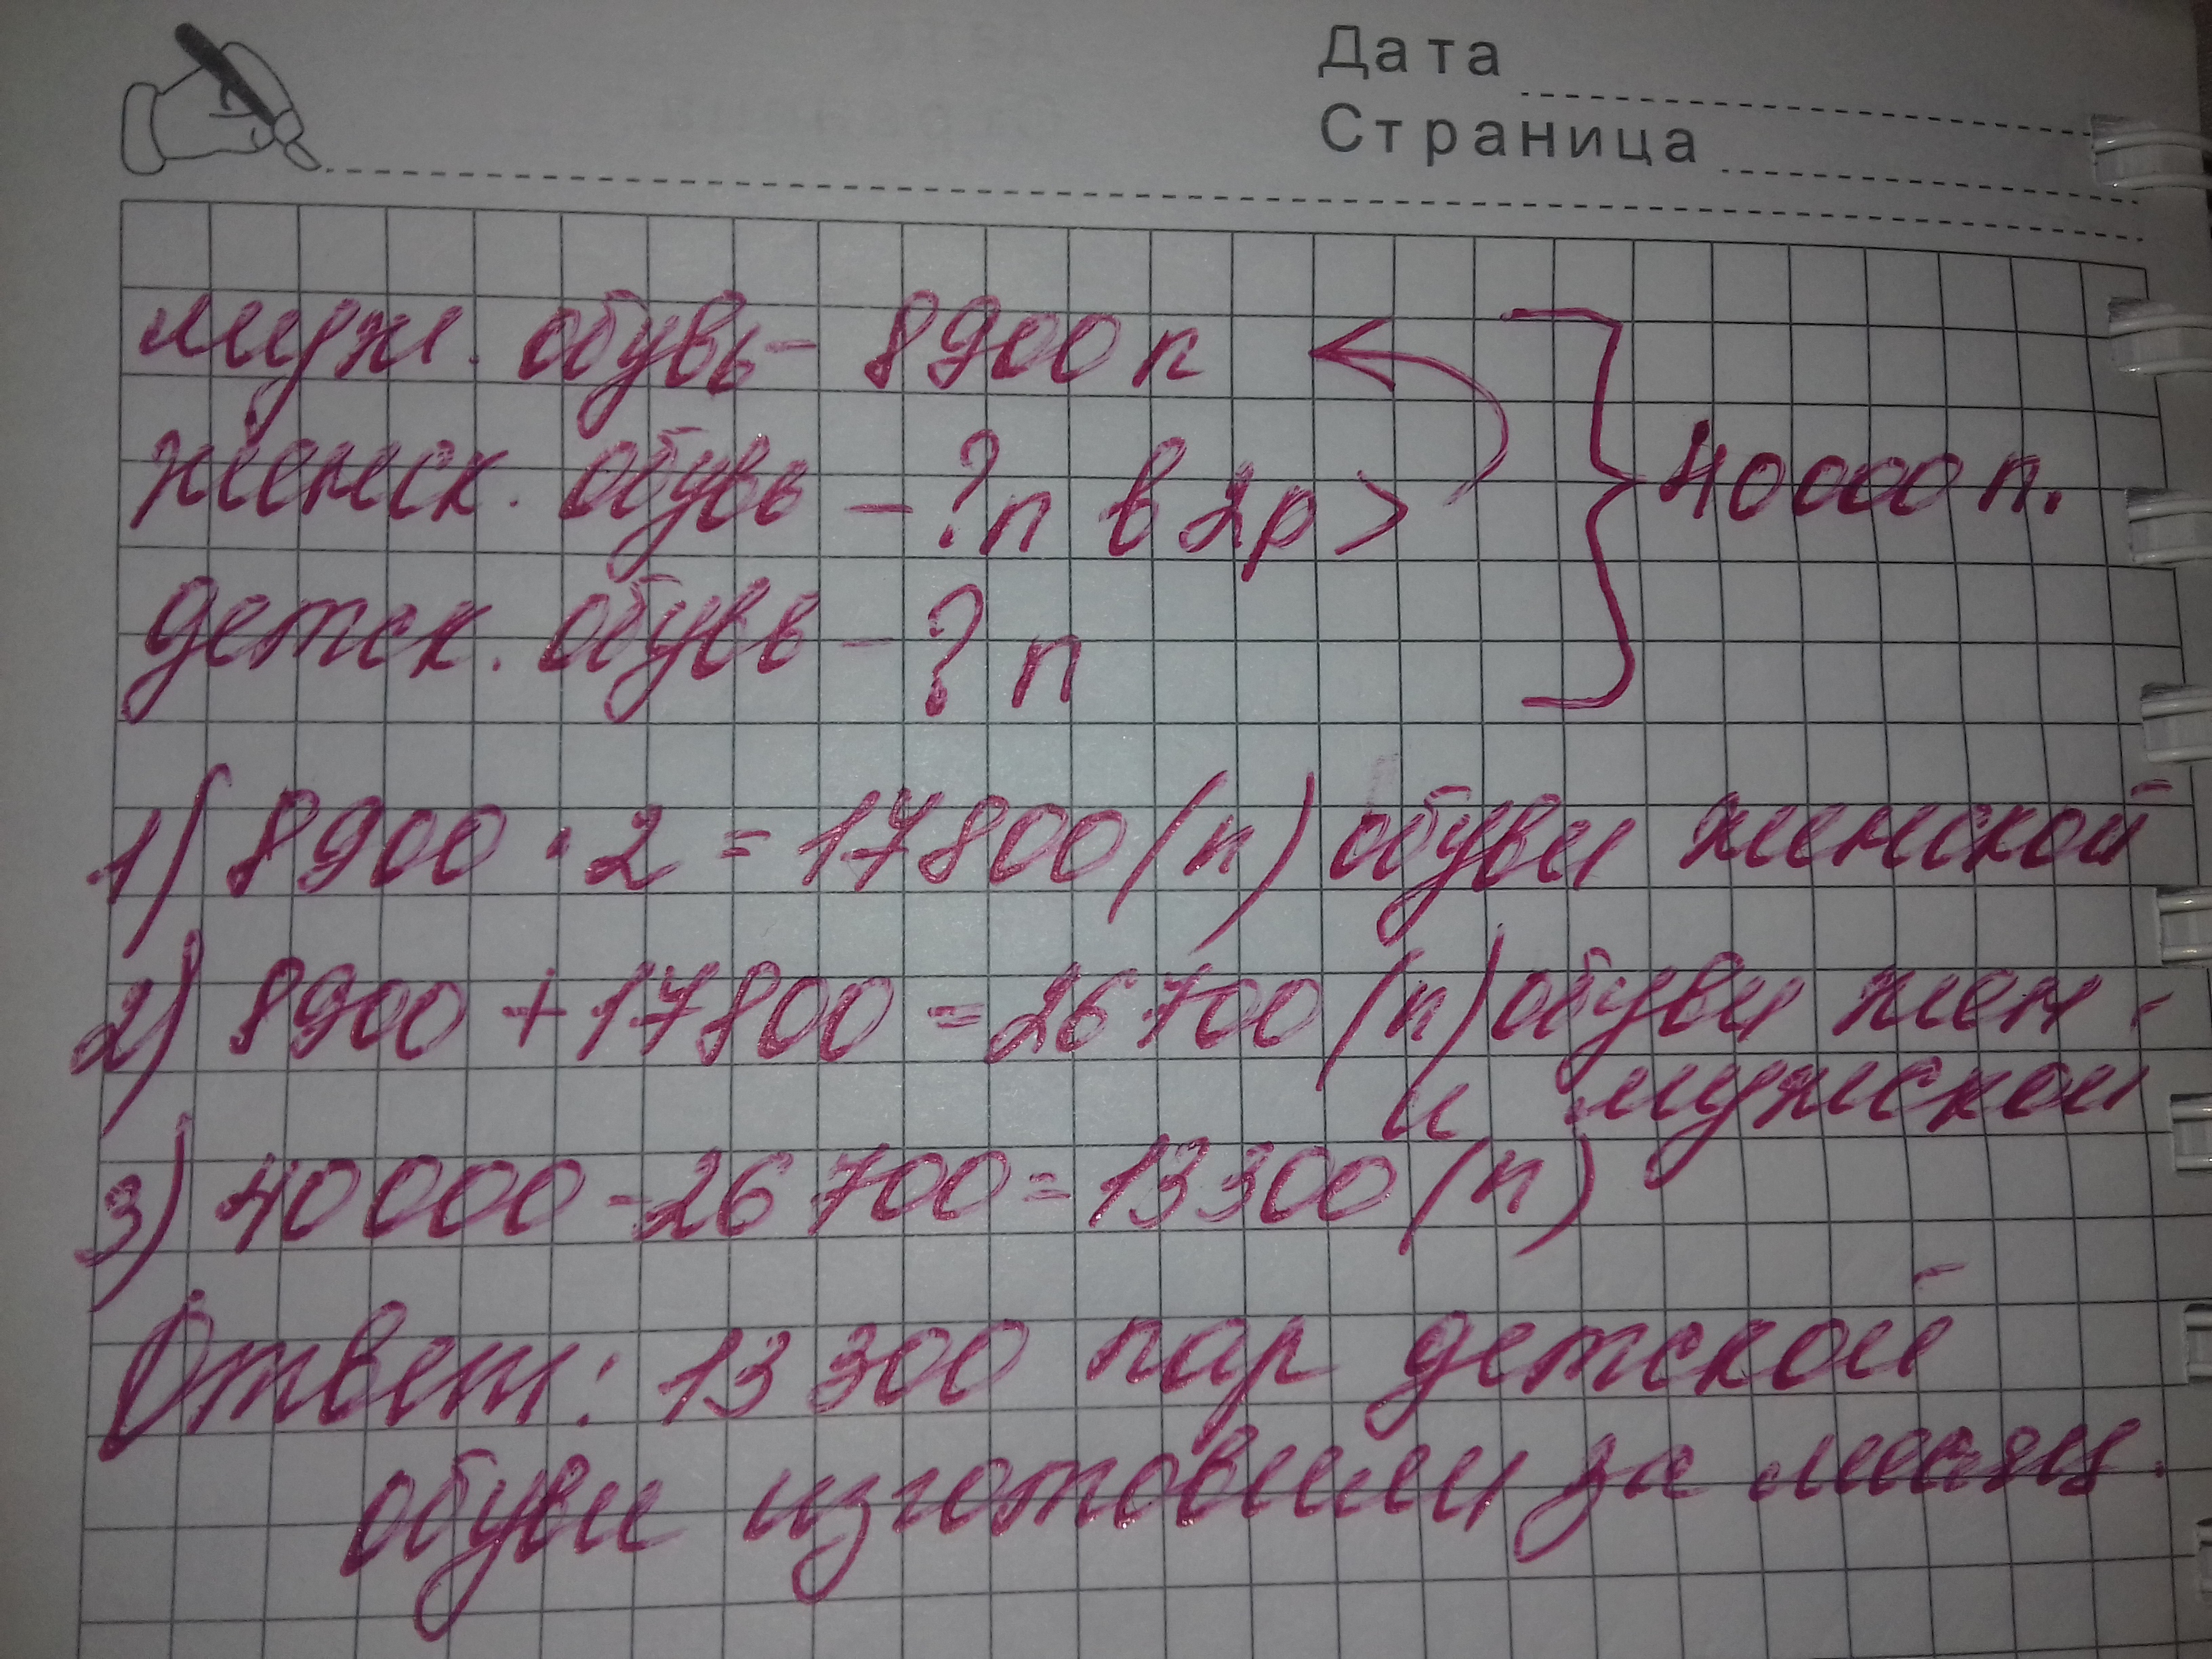 Дата
Страница
муж. обувь - 8900 п
женск. обувь - ? п в 2р >
40000 п.
детск. обувь - ? п
1) 8900 · 2 = 17800 (п) обуви женской
2) 8900 + 17800 = 26700 (п) обуви жен.
и мужской
3) 40000 - 26700 = 13300 (п)
Ответ: 13300 пар детской
обуви изготовили за месяц.